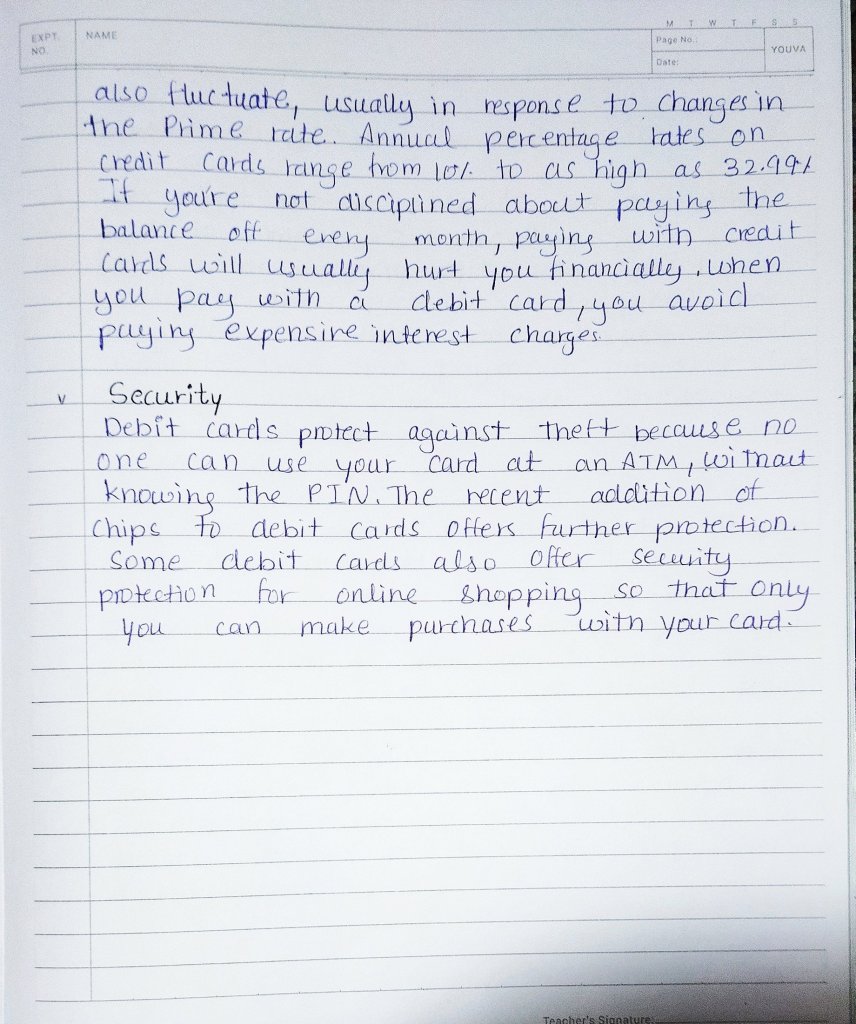 M T W T F S S
EXPT. NO.
NAME
Page No.:
YOUVA
Date:
also fluctuate, usually in response to changes in
the Prime rate. Annual percentage rates on
credit Cards range from 10% to as high as 32.99%
If you're not disciplined about paying the
balance off every month, paying with credit
Cards will usually hurt you financially, when
you pay with a debit card, you avoid
paying expensive interest charges.
v Security
Debit cards protect against theft because no
one can use your card at an ATM, without
knowing the PIN. The recent addition of
Chips to debit cards offers further protection.
Some debit cards also offer security
protection for online shopping so that only
you can make purchases with your card.
Teacher's Signature: